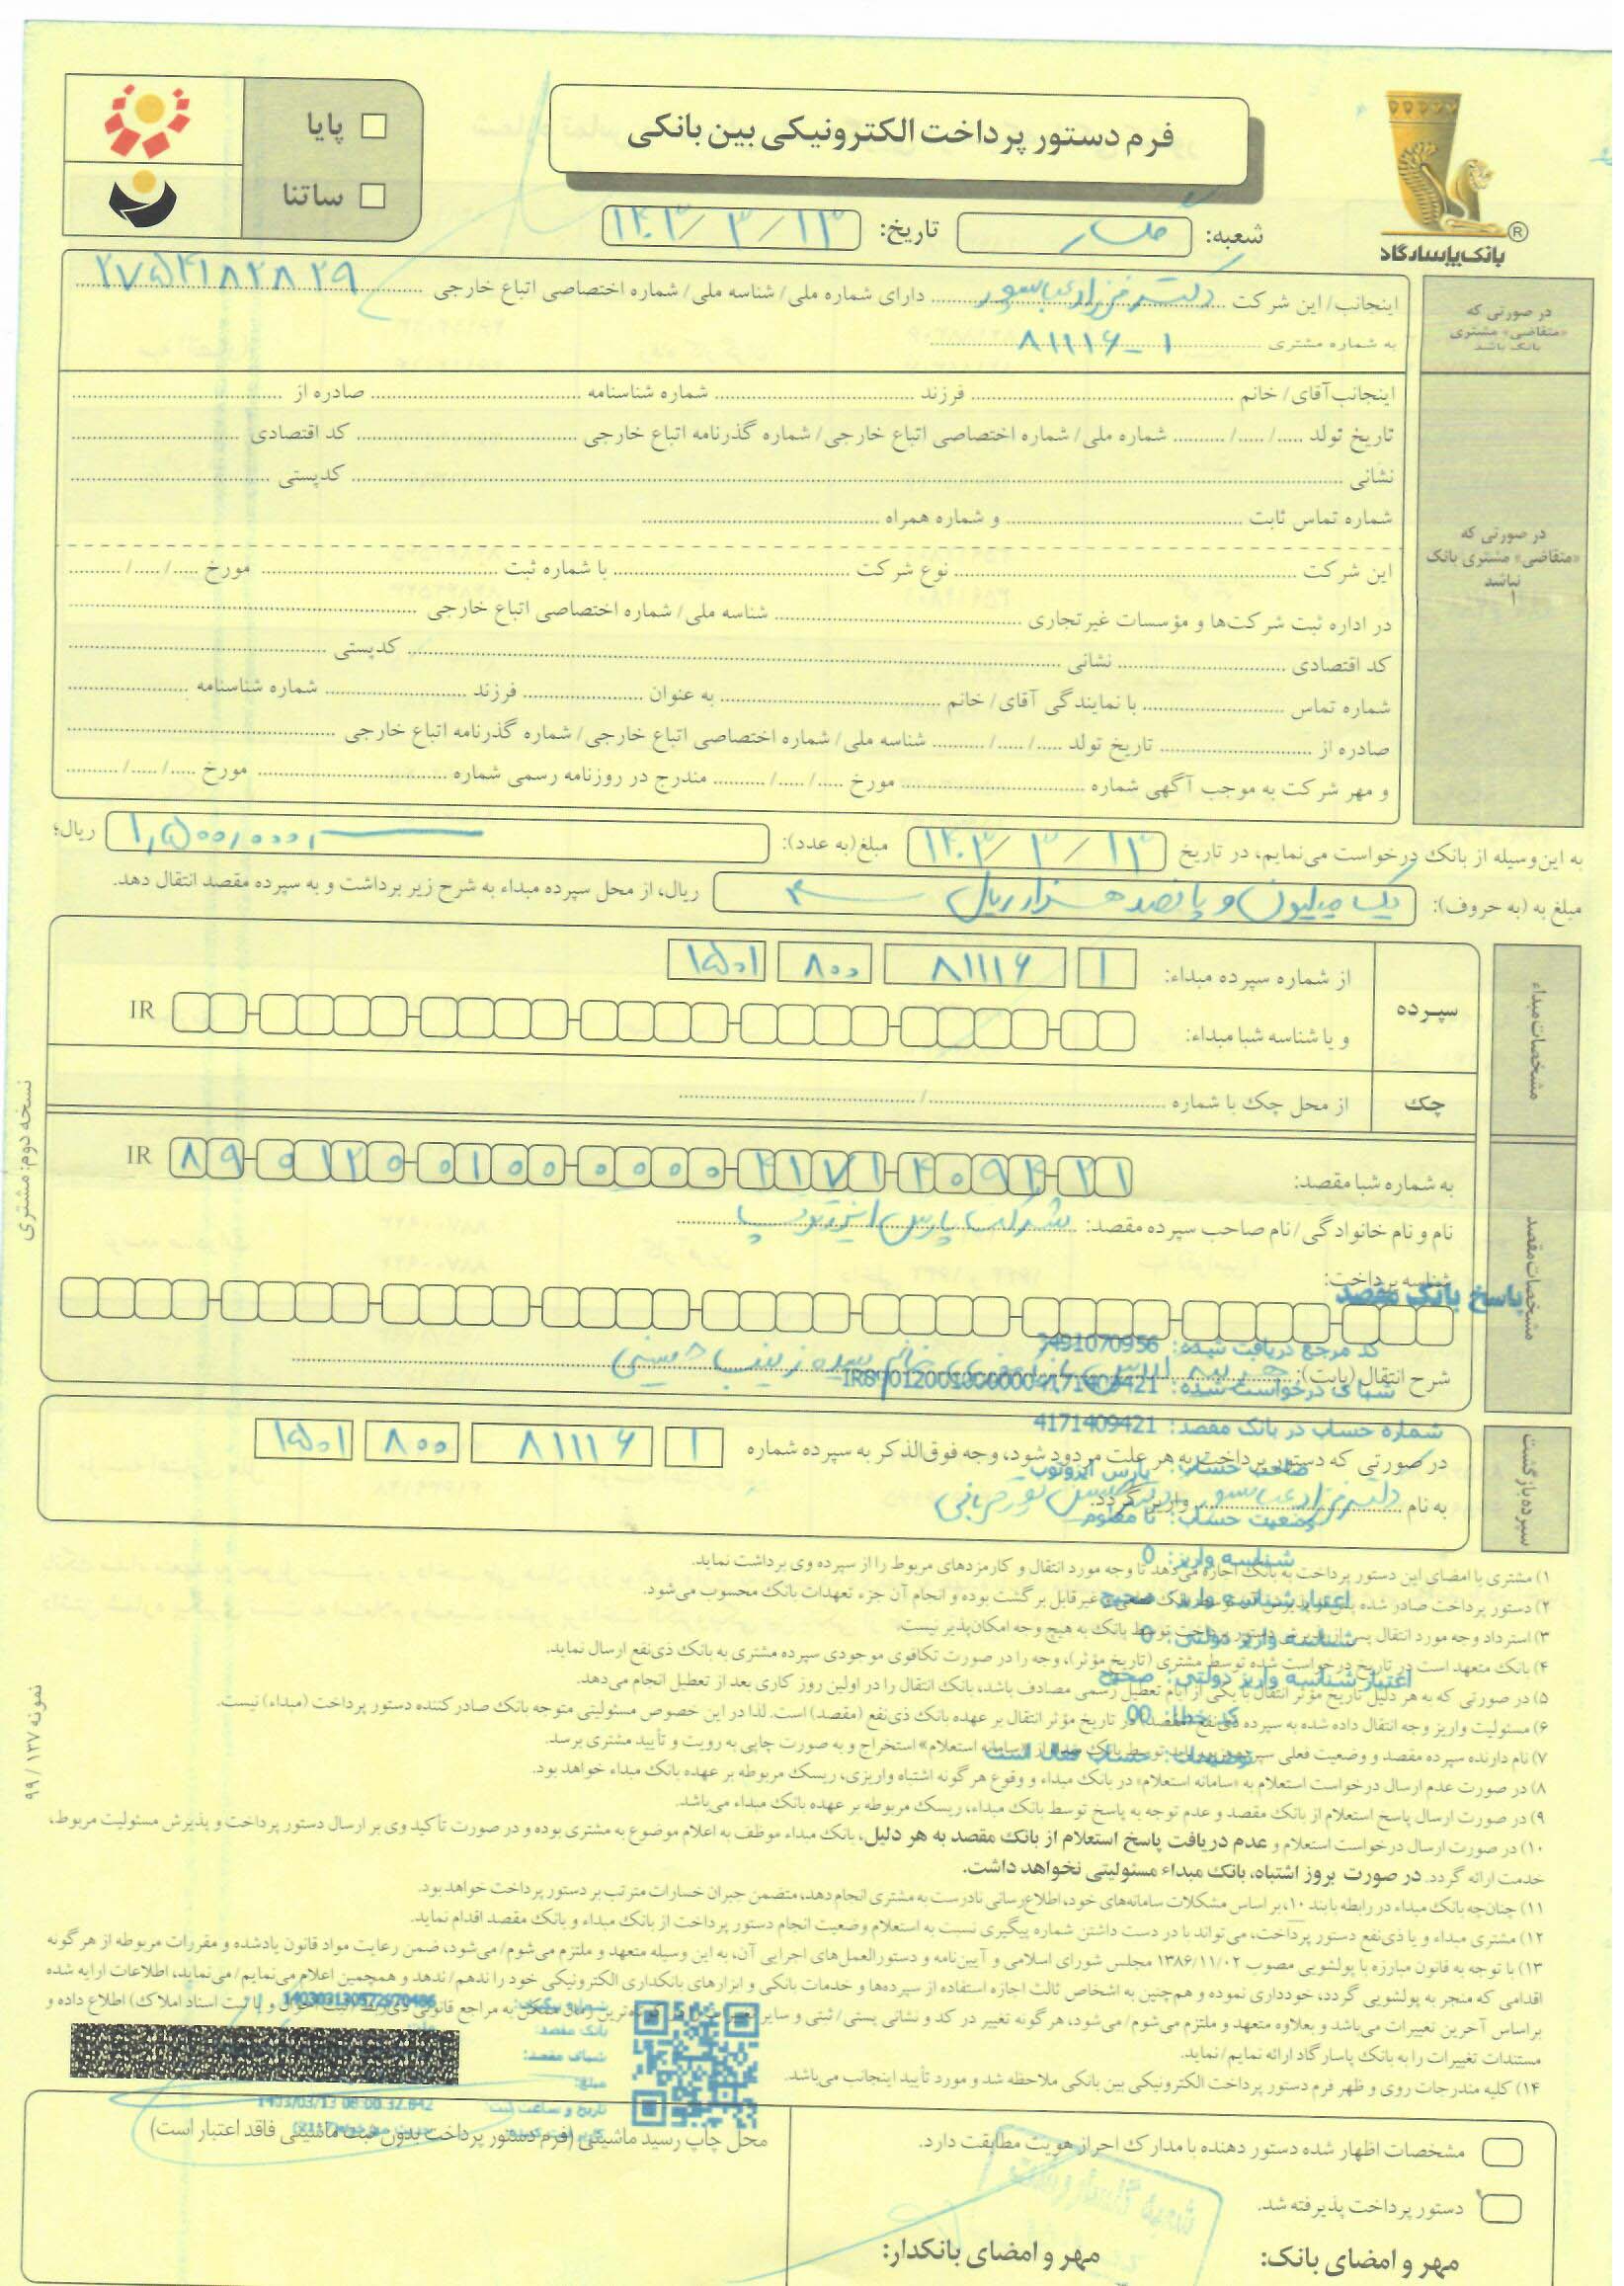 فرم دستور پرداخت الکترونیکی بین بانکی
پایا
ساتنا
بانک پاسارگاد
شعبه: تاریخ: ۱۴۰۳/۳/۱۳
در صورتی که «متقاضی» مشتری بانک باشد
اینجانب/ این شرکت دکتر فرزاد عباسپور دارای شماره ملی/ شناسه ملی/ شماره اختصاصی اتباع خارجی ۲۷۵۴۱۸۲۸۲۹
به شماره مشتری ۸۱۱۱۶-۱
در صورتی که «متقاضی» مشتری بانک نباشد
اینجانب آقای/ خانم فرزند شماره شناسنامه صادره از
تاریخ تولد ...../ ...../ .......... شماره ملی/ شماره اختصاصی اتباع خارجی/ شماره گذرنامه اتباع خارجی کد اقتصادی
نشانی کدپستی
شماره تماس ثابت و شماره همراه
این شرکت نوع شرکت با شماره ثبت مورخ ...../ ...../ ..........
در اداره ثبت شرکت‌ها و مؤسسات غیرتجاری شناسه ملی/ شماره اختصاصی اتباع خارجی
کد اقتصادی نشانی کدپستی
شماره تماس با نمایندگی آقای/ خانم به عنوان فرزند شماره شناسنامه
صادره از تاریخ تولد ...../ ...../ .......... شناسه ملی/ شماره اختصاصی اتباع خارجی/ شماره گذرنامه اتباع خارجی
و مهر شرکت به موجب آگهی شماره مورخ ...../ ...../ .......... مندرج در روزنامه رسمی شماره مورخ ...../ ...../ ..........
به این‌وسیله از بانک درخواست می‌نمایم، در تاریخ ۱۴۰۳/۳/۱۳ مبلغ(به عدد): ۱,۵۰۰,۰۰۰ ریال؛
مبلغ به (به حروف): یک میلیون و پانصد هزار ریال ریال، از محل سپرده مبداء به شرح زیر برداشت و به سپرده مقصد انتقال دهد.
مشخصات مبداء
سپرده
از شماره سپرده مبداء: ۱ ۸۱۱۱۶ ۸۰۰ ۱۵۰۱
و یا شناسه شبا مبداء: IR
چک
از محل چک با شماره /
مشخصات مقصد
به شماره شبا مقصد: IR ۸۹ ۰۱۲۰ ۰۱۰۰ ۰۰۰۰ ۴۱۷۱ ۴۰۹۴ ۲۱
نام و نام خانوادگی/ نام صاحب سپرده مقصد: شرکت پارس ایزوتوپ
شناسه پرداخت:
پاسخ بانک مقصد
کد مرجع دریافت شده: 7491070956
شرح انتقال (بابت):
شبا ی درخواست شده: IR890120010000004171409421
شماره حساب در بانک مقصد: 4171409421
سپرده بازگشت
در صورتی که دستور پرداخت به هر علت مردود شود، وجه فوق‌الذکر به سپرده شماره ۱ ۸۱۱۱۶ ۸۰۰ ۱۵۰۱
صاحب حساب: پارس ایزوتوپ
به نام دکتر فرزاد عباسپور واریز گردد.
وضعیت حساب: نا معلوم
شناسه واریز: 0
۱) مشتری با امضای این دستور پرداخت به بانک اجازه می‌دهد تا وجه مورد انتقال و کارمزدهای مربوط را از سپرده وی برداشت نماید.
اعتبار شناسه واریز: صحیح
۲) دستور پرداخت صادر شده غیرقابل برگشت بوده و انجام آن جزء تعهدات بانک محسوب می‌شود.
شناسه واریز دولتی: 0
۳) استرداد وجه مورد انتقال پس از پذیرش دستور پرداخت توسط بانک به هیچ وجه امکان‌پذیر نیست.
۴) بانک متعهد است در تاریخ درخواست شده توسط مشتری (تاریخ مؤثر)، وجه را در صورت تکافوی موجودی سپرده مشتری به بانک ذی‌نفع ارسال نماید.
اعتبار شناسه واریز دولتی: صحیح
۵) در صورتی که به هر دلیل تاریخ مؤثر انتقال با یکی از ایام تعطیل رسمی مصادف باشد، بانک انتقال را در اولین روز کاری بعد از تعطیل انجام می‌دهد.
کد خطا: 00
۶) مسئولیت واریز وجه انتقال داده شده به سپرده ذی‌نفع (مقصد) در تاریخ مؤثر انتقال بر عهده بانک ذی‌نفع (مقصد) است. لذا در این خصوص مسئولیتی متوجه بانک صادر کننده دستور پرداخت (مبداء) نیست.
توضیحات: حساب فعال است
۷) نام دارنده سپرده مقصد و وضعیت فعلی سپرده «سامانه استعلام» استخراج و به صورت چاپی به رویت و تأیید مشتری برسد.
۸) در صورت عدم ارسال درخواست استعلام به «سامانه استعلام» در بانک مبداء و وقوع هر گونه اشتباه واریزی، ریسک مربوطه بر عهده بانک مبداء خواهد بود.
۹) در صورت ارسال پاسخ استعلام از بانک مقصد و عدم توجه به پاسخ توسط بانک مبداء، ریسک مربوطه بر عهده بانک مبداء می‌باشد.
۱۰) در صورت ارسال درخواست استعلام و عدم دریافت پاسخ استعلام از بانک مقصد به هر دلیل، بانک مبداء موظف به اعلام موضوع به مشتری بوده و در صورت تأکید وی بر ارسال دستور پرداخت و پذیرش مسئولیت مربوط،
خدمت ارائه گردد. در صورت بروز اشتباه، بانک مبداء مسئولیتی نخواهد داشت.
۱۱) چنان‌چه بانک مبداء در رابطه با بند ۱۰، بر اساس مشکلات سامانه‌های خود، اطلاع‌رسانی نادرست به مشتری انجام دهد، متضمن جبران خسارات مترتب بر دستور پرداخت خواهد بود.
۱۲) مشتری مبداء و یا ذی‌نفع دستور پرداخت، می‌تواند با در دست داشتن شماره پیگیری نسبت به استعلام وضعیت انجام دستور پرداخت از بانک مبداء و بانک مقصد اقدام نماید.
۱۳) با توجه به قانون مبارزه با پولشویی مصوب ۱۳۸۶/۱۱/۰۲ مجلس شورای اسلامی و آیین‌نامه و دستورالعمل‌های اجرایی آن، به این وسیله متعهد و ملتزم می‌شوم/ می‌شود، ضمن رعایت مواد قانون یادشده و مقررات مربوطه از هر گونه
اقدامی که منجر به پولشویی گردد، خودداری نموده و هم‌چنین به اشخاص ثالث اجازه استفاده از سپرده‌ها و خدمات بانکی و ابزارهای بانکداری الکترونیکی خود را ندهم/ ندهد و همچنین اعلام می‌نمایم/ می‌نماید، اطلاعات ارایه شده
براساس آخرین تغییرات می‌باشد و بعلاوه متعهد و ملتزم می‌شوم/ می‌شود، هر گونه تغییر در کد و نشانی پستی/ ثبتی و سایر به مراجع قانونی اطلاع داده و
مستندات تغییرات را به بانک پاسارگاد ارائه نمایم/ نماید.
بانک مقصد:
شبای مقصد:
مبلغ:
۱۴) کلیه مندرجات روی و ظهر فرم دستور پرداخت الکترونیکی بین بانکی ملاحظه شد و مورد تأیید اینجانب می‌باشد.
تاریخ و ساعت ثبت:
محل چاپ رسید ماشینی (فرم دستور پرداخت بدون ثبت ماشینی فاقد اعتبار است)
مشخصات اظهار شده دستور دهنده با مدارک احراز هویت مطابقت دارد.
دستور پرداخت پذیرفته شد.
مهر و امضای بانک: مهر و امضای بانکدار:
نسخه دوم: مشتری
نمونه ۱۳۷ / ۹۹